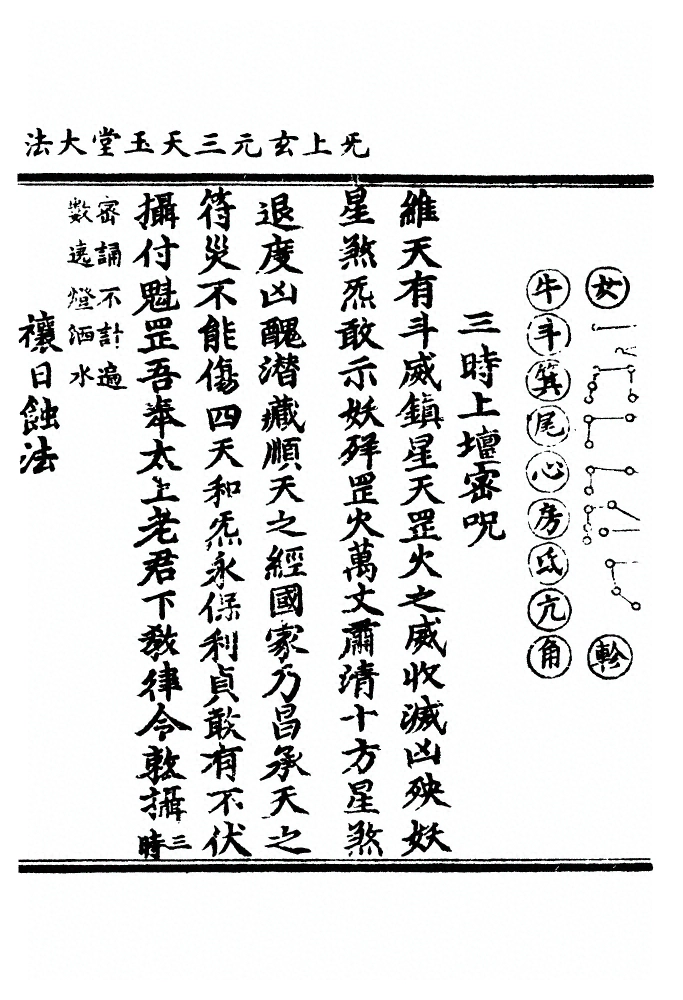 旡上玄元三天玉堂大法
女
軫
牛斗箕尾心房氐亢角
三時上壇密呪
維天有斗威鎮星天罡火之威收滅凶殃妖
星煞炁敢示妖罡火萬丈肅清十方星煞
退度凶醜潛藏順天之經國家乃昌承天之
符災不能傷四天和炁永保利貞敢有不伏
攝付魁罡吾奉太上老君下教律令敕攝三時
密誦不計遍
數遶燈洒水
禳日蝕法